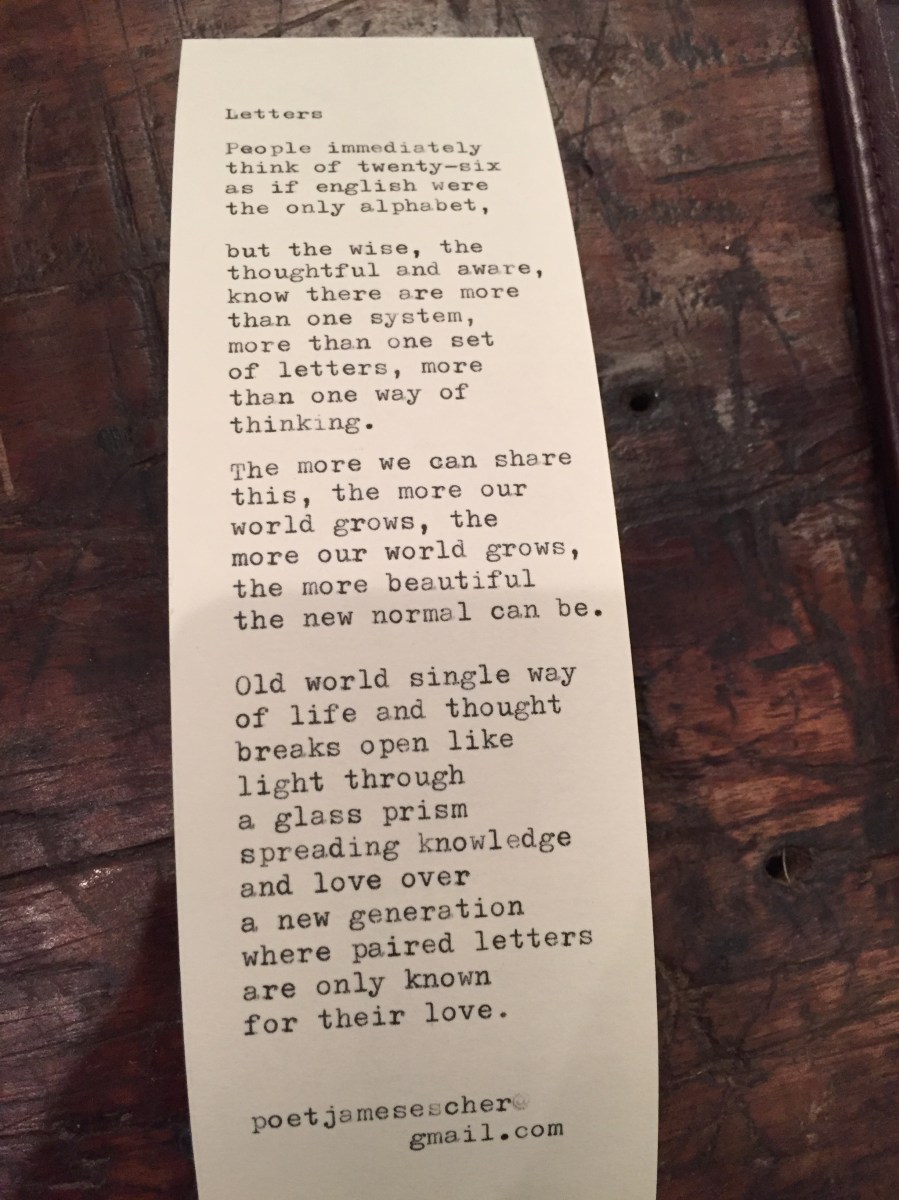 Letters
People immediately
think of twenty-six
as if english were
the only alphabet,
but the wise, the
thoughtful and aware,
know there are more
than one system,
more than one set
of letters, more
than one way of
thinking.
The more we can share
this, the more our
world grows, the
more our world grows,
the more beautiful
the new normal can be.
Old world single way
of life and thought
breaks open like
light through
a glass prism
spreading knowledge
and love over
a new generation
where paired letters
are only known
for their love.
poetjamesescher@
gmail.com